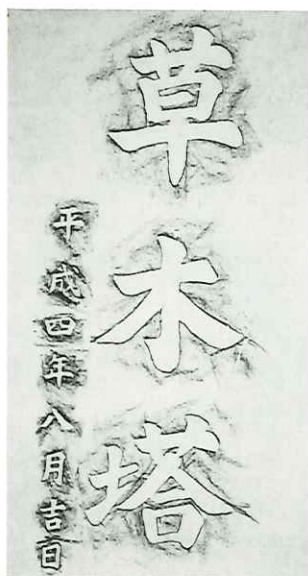 草木塔
平成四年八月吉日